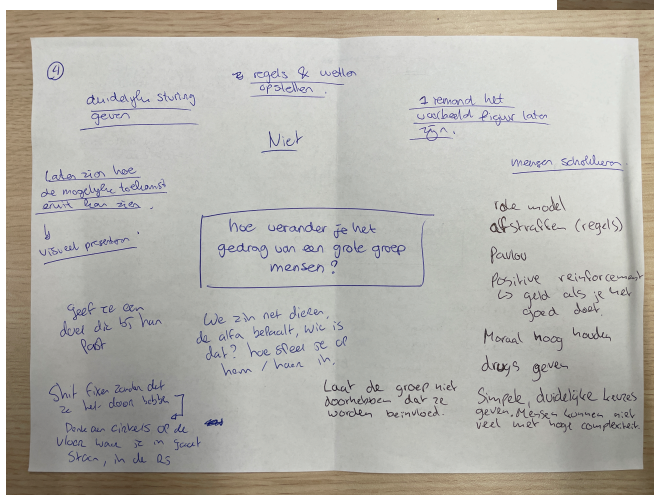 ④
duidelyke sturing
geven
regels & wetten
opstellen.
Niet
1 iemand het
voorbeeld figuur laten
zijn.
Laten zien hoe
de mogelyke toekomst
eruit kan zien.
visueel presenteren.
hoe verander je het
gedrag van een grote groep
mensen?
mensen
role model
affstraffen (regels)
Pavlov
Positive reinforcement
↳ geld als je het
goed doet.
Moraal hoog houden
drugs geven
Simpele, duidelijke keuzes
geven. Mensen kunnen niet
veel met hoge complexiteit.
geef ze een
doel die bij hun
past
We zijn net dieren,
de alfa bepaalt, wie is
dat? hoe speel je op
hem / haar in.
Laat de groep niet
doorhebben dat ze
worden beinvloed.
Shit fixen zonder dat
ze het door hebben
Denk aan cirkels op de
vloer waar je in gaat
staan, in de RS